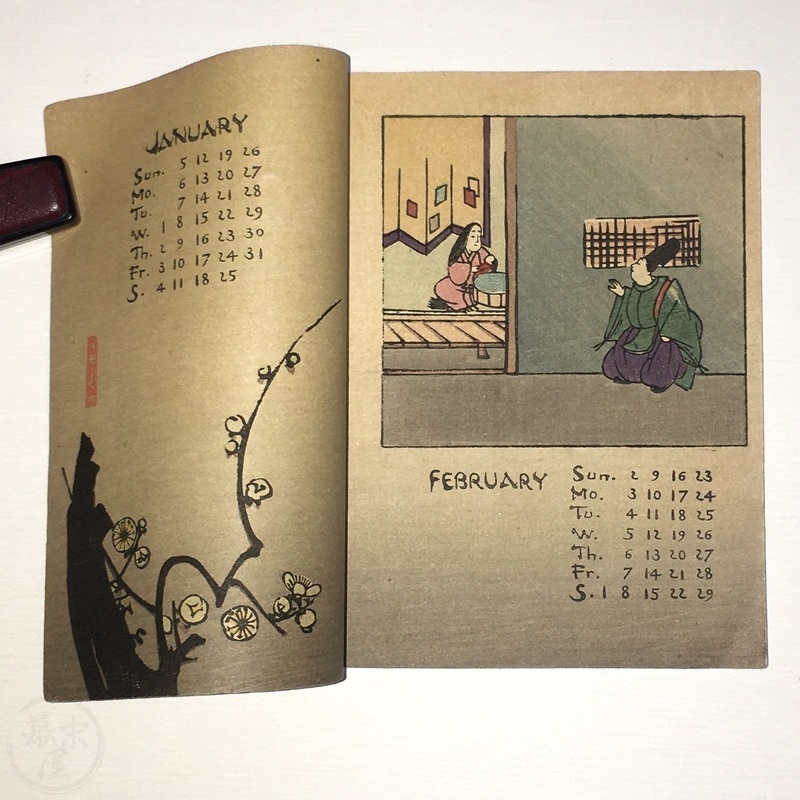 JANUARY
Sun. 5 12 19 26
Mo. 6 13 20 27
Tu. 7 14 21 28
W. 1 8 15 22 29
Th. 2 9 16 23 30
Fr. 3 10 17 24 31
S. 4 11 18 25
FEBRUARY
Sun. 2 9 16 23
Mo. 3 10 17 24
Tu. 4 11 18 25
W. 5 12 19 26
Th. 6 13 20 27
Fr. 7 14 21 28
S. 1 8 15 22 29
幕末屋